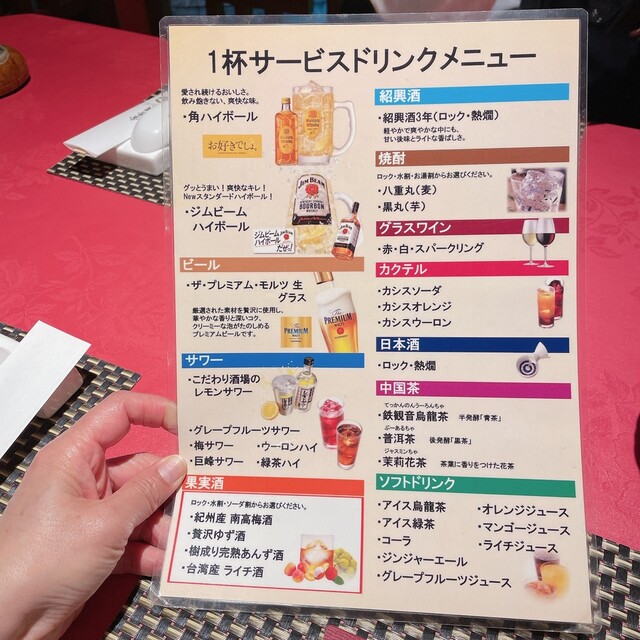 1杯サービスドリンクメニュー
愛され続けるおいしさ。
飲み飽きない、爽快な味。
・角ハイボール
お好きでしょ。
グッとうまい！爽快なキレ！
Newスタンダードハイボール！
・ジムビーム
ハイボール
JIM BEAM
BOURBON
ジムビーム
ハイボール
だぜっ!
ビール
・ザ・プレミアム・モルツ 生
グラス
厳選された素材を贅沢に使用し、
華やかな香りと深いコク、
クリーミーな泡がたのしめる
プレミアムビールです。
PREMIUM
PREMIUM
サワー
・こだわり酒場の
レモンサワー
・グレープフルーツサワー
・梅サワー ・ウーロンハイ
・巨峰サワー ・緑茶ハイ
果実酒
ロック・水割・ソーダ割からお選びください。
・紀州産 南高梅酒
・贅沢ゆず酒
・樹成り完熟あんず酒
・台湾産 ライチ酒
紹興酒
・紹興酒3年(ロック・熱燗)
軽やかで爽やかな中にも、
甘い後味とライトな香ばしさ。
焼酎
ロック・水割・お湯割からお選びください。
・八重丸(麦)
・黒丸(芋)
グラスワイン
・赤・白・スパークリング
カクテル
・カシスソーダ
・カシスオレンジ
・カシスウーロン
日本酒
・ロック・熱燗
中国茶
てっかんのんうーろんちゃ
・鉄観音烏龍茶 半発酵「青茶」
ぷーあるちゃ
・普洱茶 後発酵「黒茶」
ジャスミンちゃ
・茉莉花茶 茶葉に香りをつけた花茶
ソフトドリンク
・アイス烏龍茶
・アイス緑茶
・コーラ
・ジンジャーエール
・グレープフルーツジュース
・オレンジジュース
・マンゴージュース
・ライチジュース